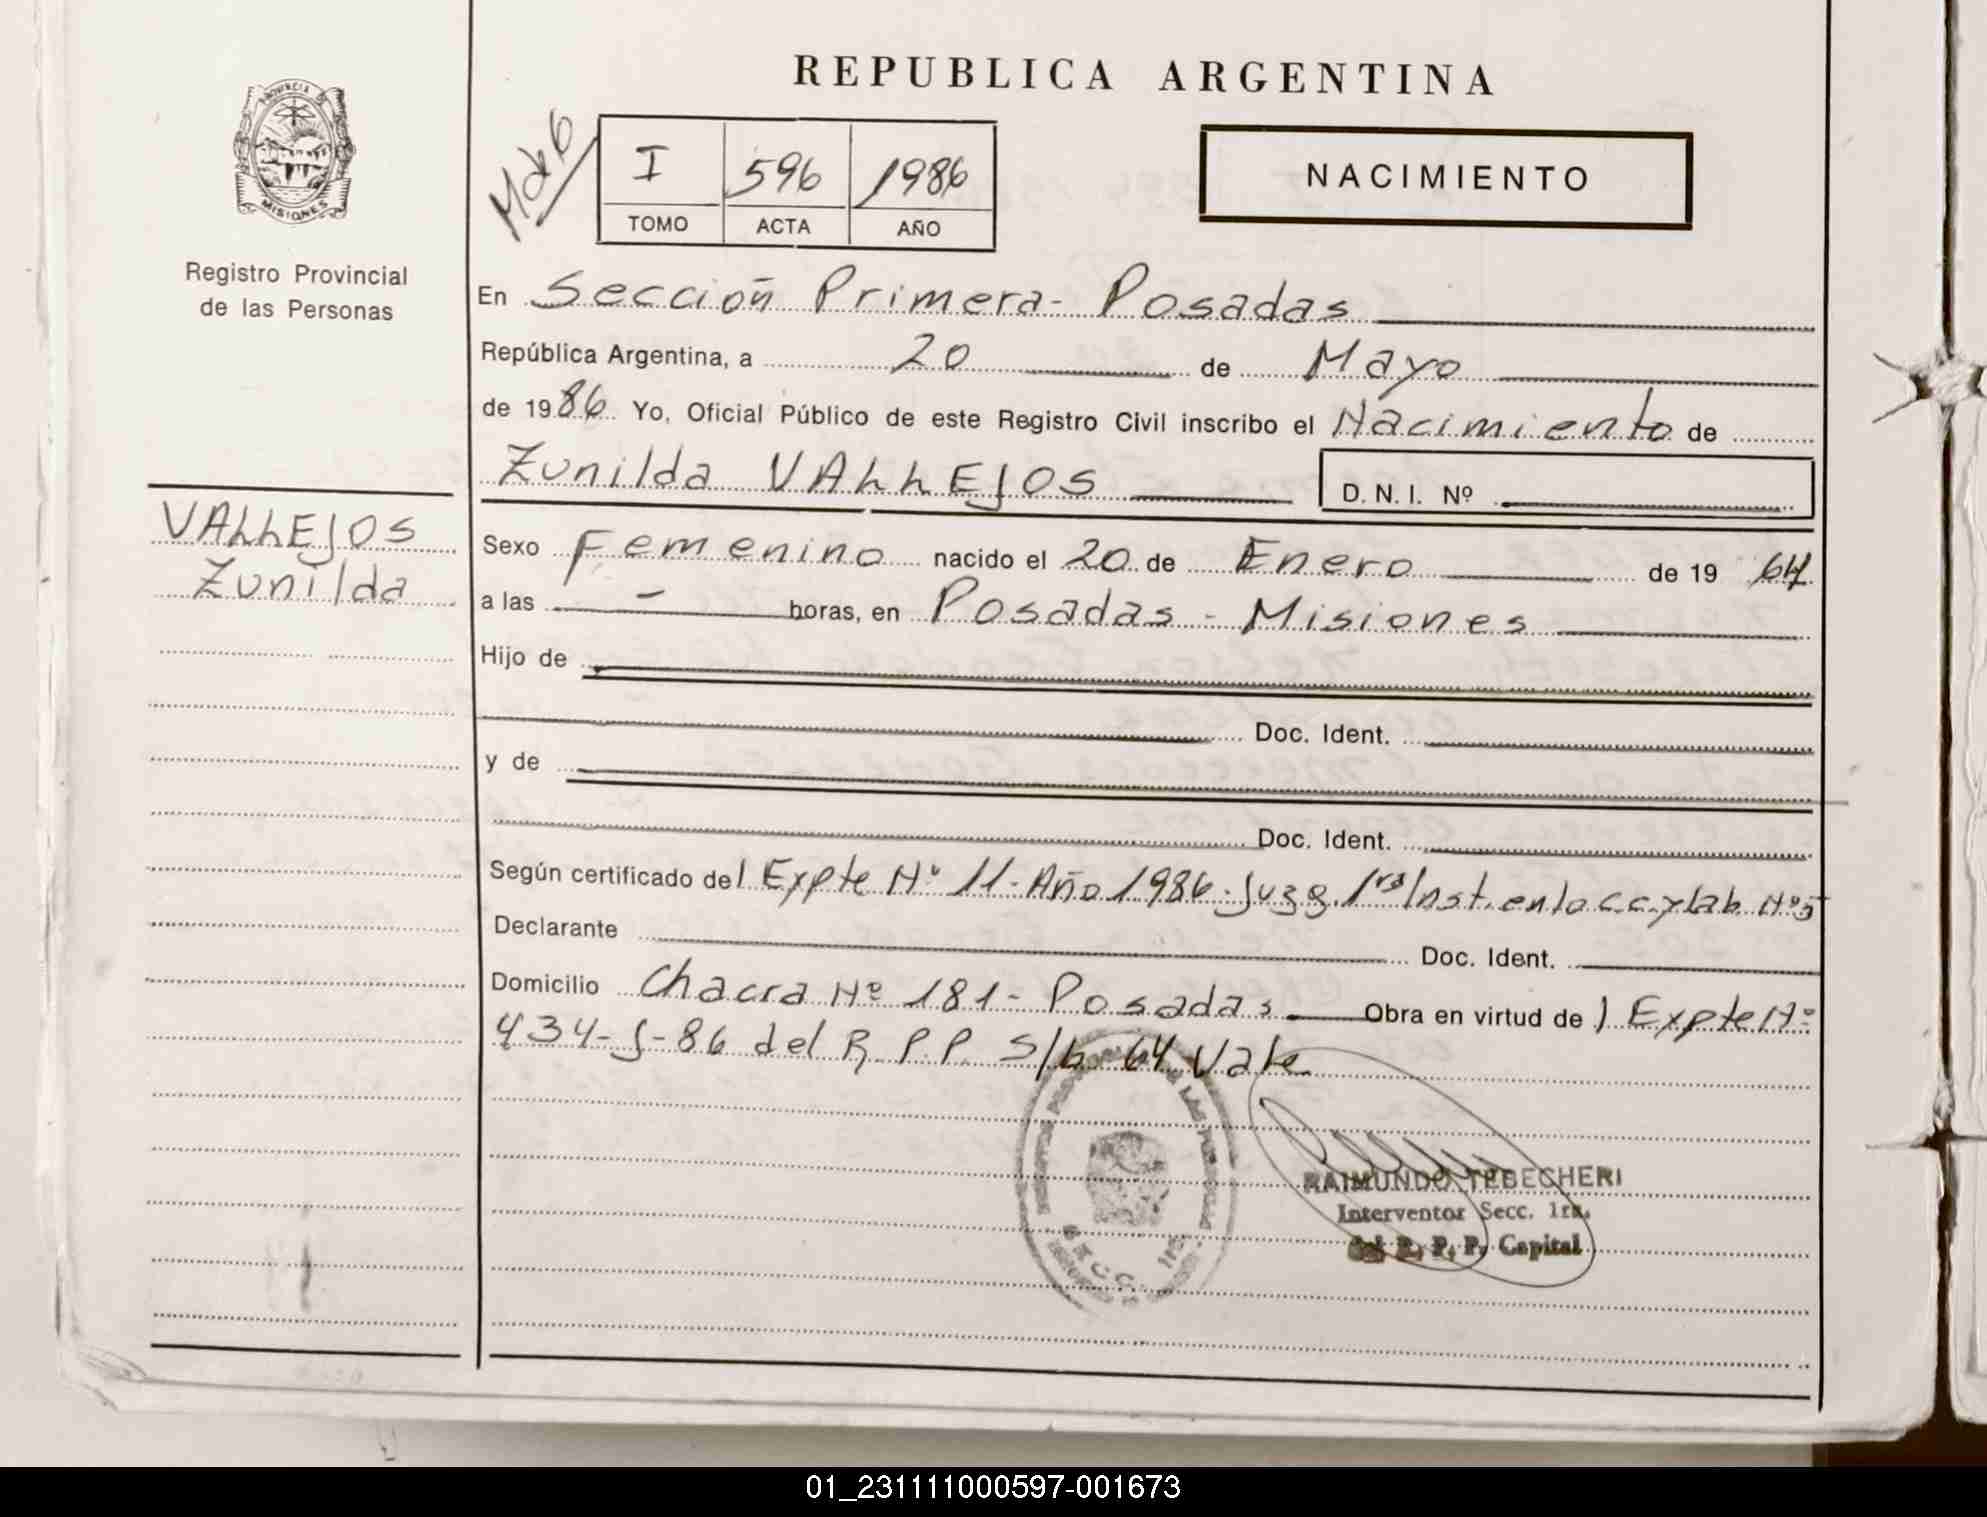 REPUBLICA ARGENTINA
PROVINCIA DE
MISIONES
Registro Provincial
de las Personas
I 596 1986
TOMO ACTA AÑO
NACIMIENTO
En Sección Primera - Posadas
República Argentina, a 20 de Mayo
de 1986 Yo, Oficial Público de este Registro Civil inscribo el Nacimiento de
Zunilda VALLEJOS D. N. I. Nº
VALLEJOS
Zunilda
Sexo Femenino nacido el 20 de Enero de 19 64
a las - horas, en Posadas - Misiones
Hijo de
Doc. Ident.
y de
Doc. Ident.
Según certificado del Expte Nº 11 - Año 1986 - Juzg. 1ra Inst. en lo c.c. y lab. Nº 5
Declarante Doc. Ident.
Domicilio Chacra Nº 181 - Posadas Obra en virtud de l Expte Nº
434-J-86 del R. P. P. S/b 64 Vale
RAIMUNDO TEBECHERI
Interventor Secc. 1ra.
del R. P. P. Capital
01_231111000597-001673